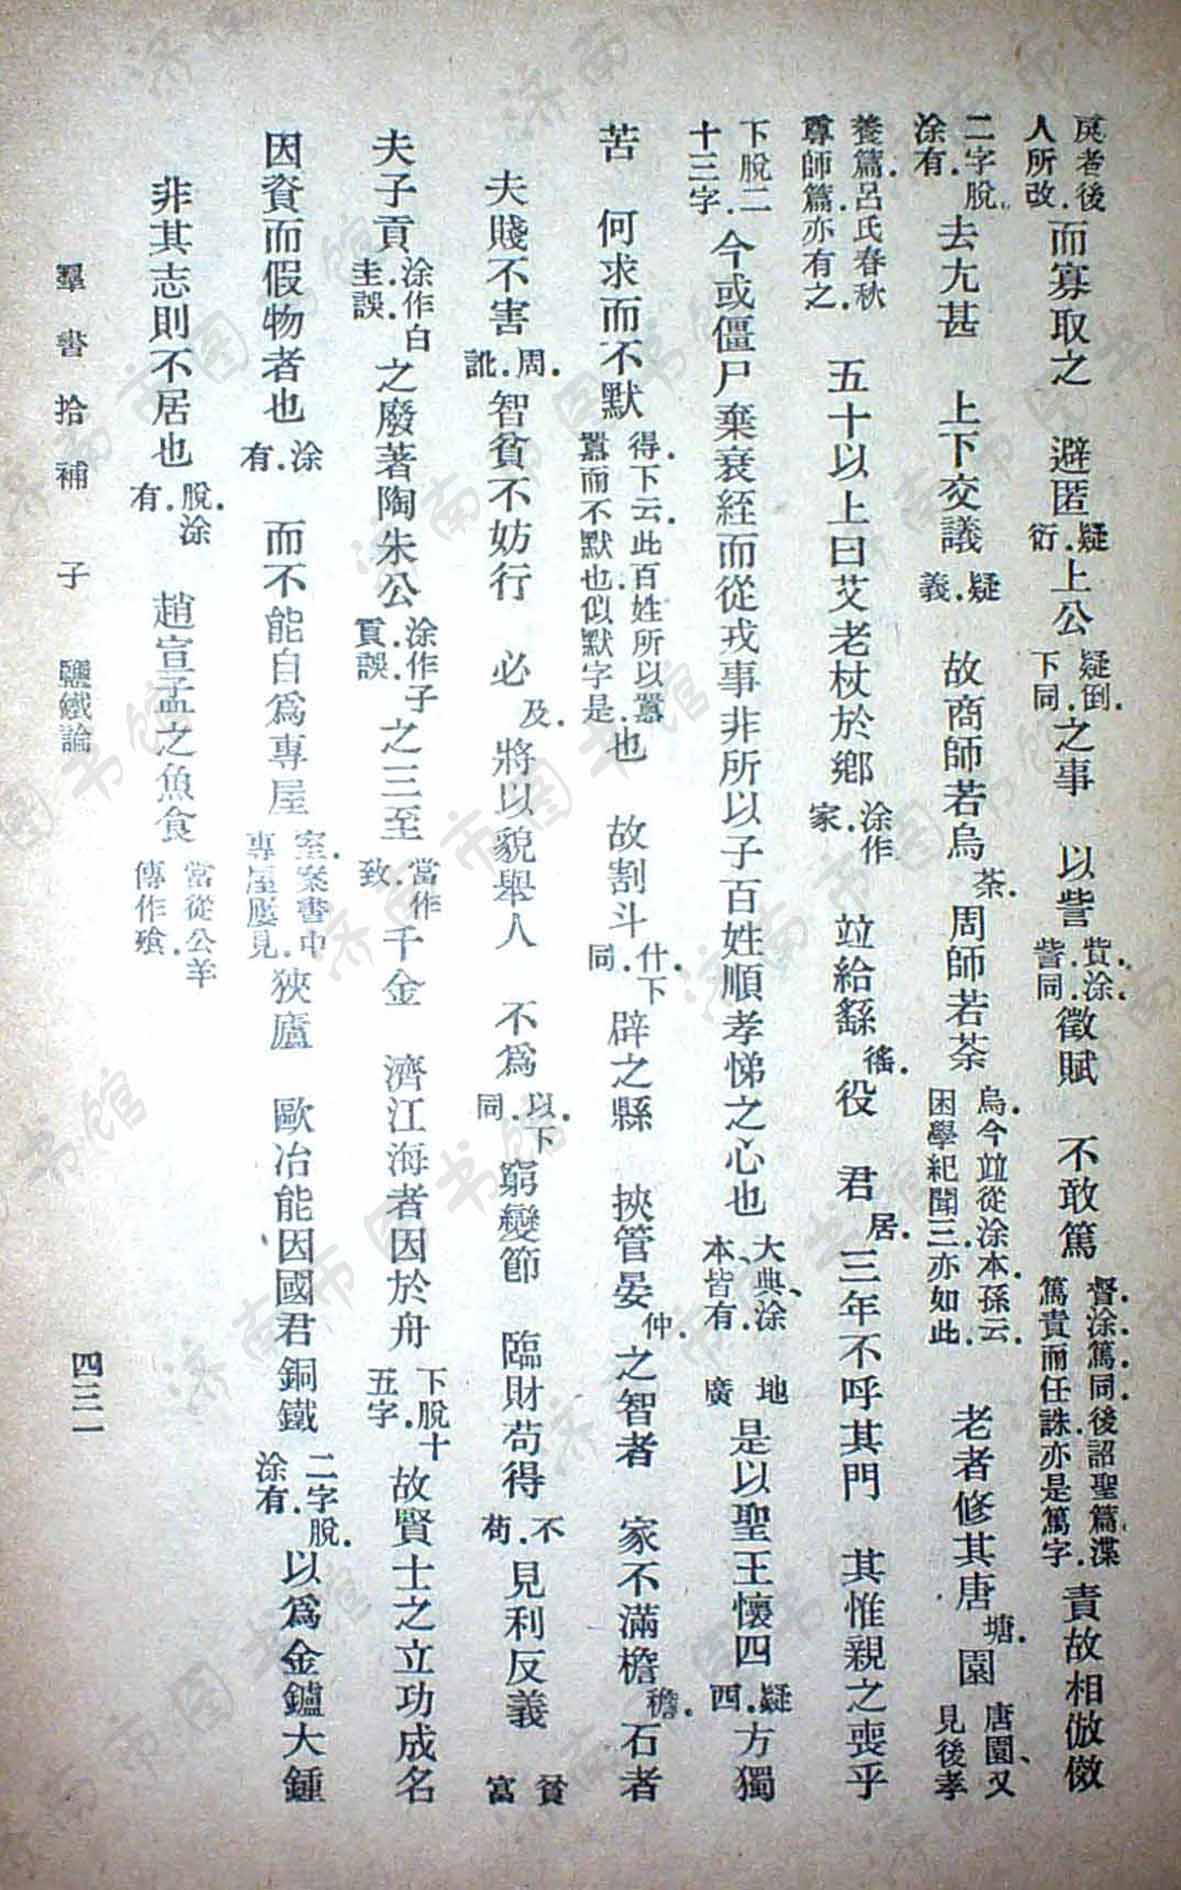 者後人所改.而寡取之　避匿疑衍.上公疑倒.下同.之事　以訾貲.涂訾同.徵賦　不敢篤督.涂篤同.後詔聖篇渫篤責而任誅.亦是篤字.責故相倣傚
二字脫.涂有.去尢甚　上下交議疑義.　故商師若烏荼.周師若荼烏.今竝從涂本.孫云.困學紀聞三.亦如此.　老者修其唐塘.園唐園、又見後孝
養篇.呂氏春秋尊師篇.亦有之.　五十以上曰艾老杖於鄉涂作家.　竝給繇徭.役　君居.三年不呼其門　其惟親之喪乎
下脫二十三字.今或僵尸棄衰絰而從戎事非所以子百姓順孝悌之心也大典、涂本、皆有.　地廣　是以聖王懷四疑西.方獨
苦　何求而不默得.下云.此百姓所以囂囂而不默也.似默字是.也　故割斗什.下同.辟之縣　挾管晏仲.之智者　家不滿檐石者
夫賤不害周.訿.智貧不妨行　必及.將以貌舉人　不爲以.下同.窮變節　臨財苟得不苟.見利反義　貧富
夫子貢涂作白圭.誤.之廢著陶朱公涂作子貢.誤.之三至當作致.千金　濟江海者因於舟下脫十五字.故賢士之立功成名
因資而假物者也涂有.　而不能自爲專屋室.案書中專屋屢見.狹廬　歐冶能因國君銅鐵二字脫.涂有.以爲金鑪大鍾
非其志則不居也脫.涂有.　趙宣孟之魚食當從公羊傳作飱.
羣書拾補　子　鹽鐵論　四三一